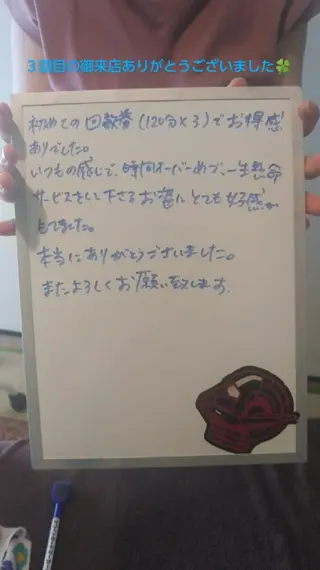 3回目の御来店ありがとうございました🍀
初めての回数券(120分×3)でお得感
ありでした。
いつもの感じで、時間オーバーめで、一生懸命
サービスをして下さるお姿にとても好感が
もてました。
本当にありがとうございました。
またよろしくお願い致します。